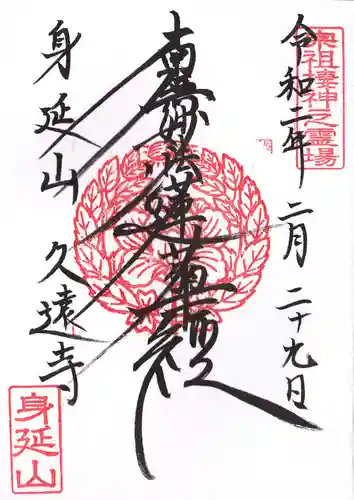 奥祖棲神之霊場
令和二年 二月二十九日
南無妙法蓮華経
身延山 久遠寺
身延山